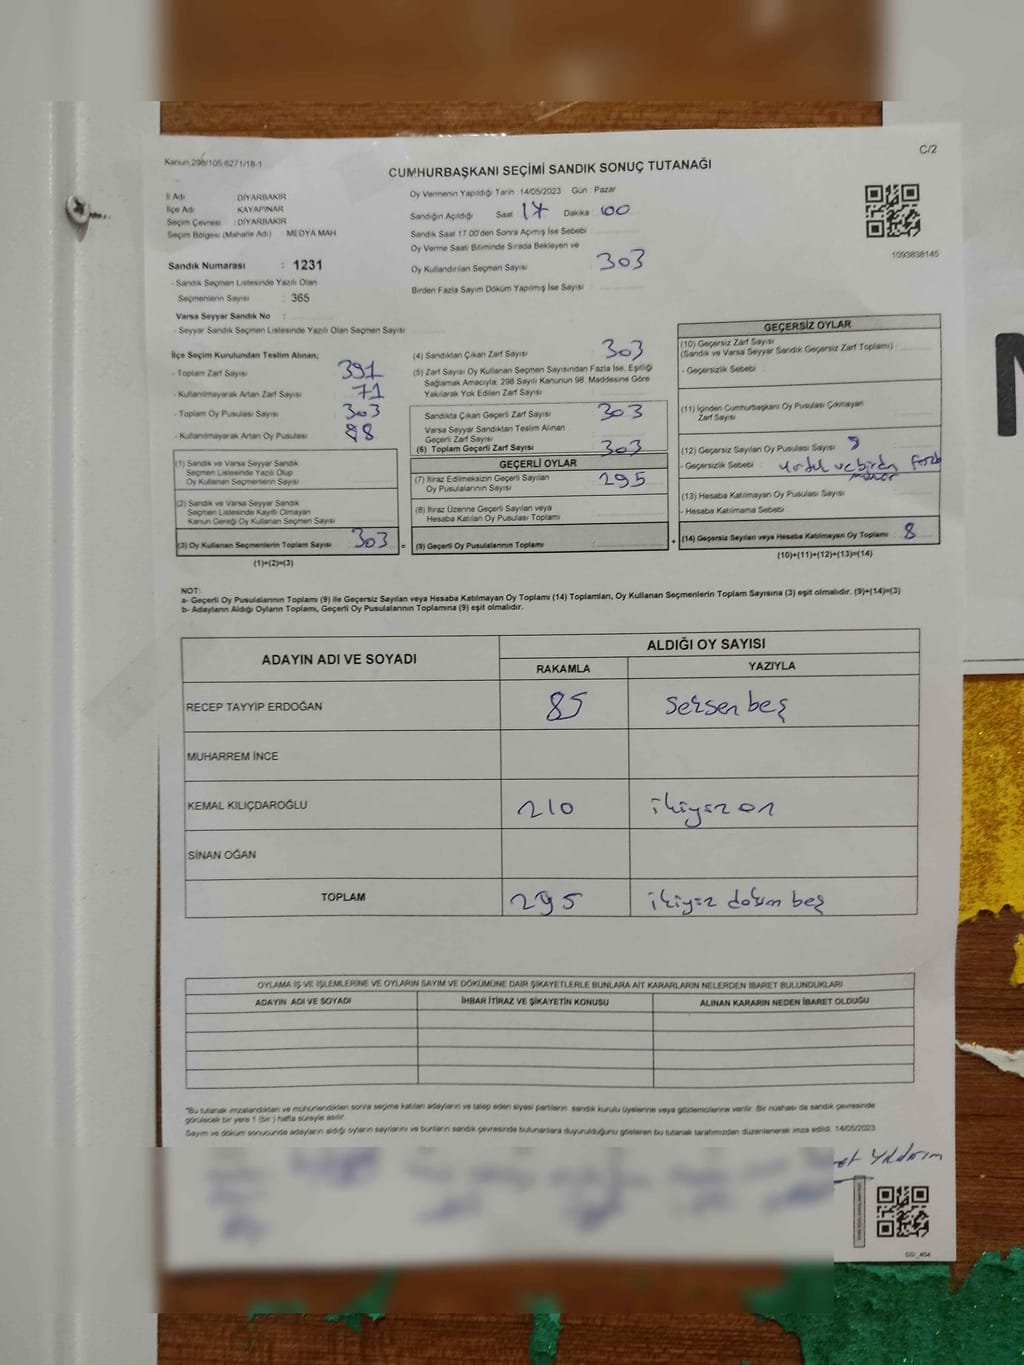 Kanun 298/105 6271/18-1
C/2
CUMHURBAŞKANI SEÇİMİ SANDIK SONUÇ TUTANAĞI
İl Adı DİYARBAKIR
İlçe Adı KAYAPINAR
Seçim Çevresi : DİYARBAKIR
Seçim Bölgesi (Mahalle Adı) : MEDYA MAH
Oy Vermenin Yapıldığı Tarih 14/05/2023 Gün : Pazar
Sandığın Açıldığı Saat 17 Dakika 00
Sandık Saat 17.00'den Sonra Açılmış İse Sebebi
Oy Verme Saati Bitiminde Sırada Bekleyen ve
Oy Kullandırılan Seçmen Sayısı 303
Birden Fazla Sayım Döküm Yapılmış İse Sayısı
1093838145
Sandık Numarası : 1231
- Sandık Seçmen Listesinde Yazılı Olan
Seçmenlerin Sayısı : 365
Varsa Seyyar Sandık No :
- Seyyar Sandık Seçmen Listesinde Yazılı Olan Seçmen Sayısı
İlçe Seçim Kurulundan Teslim Alınan;
- Toplam Zarf Sayısı 391
- Kullanılmayarak Artan Zarf Sayısı 71
- Toplam Oy Pusulası Sayısı 303
- Kullanılmayarak Artan Oy Pusulası 88
(1) Sandık ve Varsa Seyyar Sandık
Seçmen Listesinde Yazılı Olup
Oy Kullanan Seçmenlerin Sayısı
(2) Sandık ve Varsa Seyyar Sandık
Seçmen Listesinde Kayıtlı Olmayan
Kanun Gereği Oy Kullanan Seçmen Sayısı
(3) Oy Kullanan Seçmenlerin Toplam Sayısı 303
(1)+(2)=(3)
(4) Sandıktan Çıkan Zarf Sayısı 303
(5) Zarf Sayısı Oy Kullanan Seçmen Sayısından Fazla İse, Eşitliği
Sağlamak Amacıyla; 298 Sayılı Kanunun 98. Maddesine Göre
Yakılarak Yok Edilen Zarf Sayısı
Sandıkta Çıkan Geçerli Zarf Sayısı 303
Varsa Seyyar Sandıktan Teslim Alınan
Geçerli Zarf Sayısı
(6) Toplam Geçerli Zarf Sayısı 303
GEÇERLİ OYLAR
(7) İtiraz Edilmeksizin Geçerli Sayılan
Oy Pusulalarının Sayısı 295
(8) İtiraz Üzerine Geçerli Sayılan veya
Hesaba Katılan Oy Pusulası Toplamı
= (9) Geçerli Oy Pusulalarının Toplamı
GEÇERSİZ OYLAR
(10) Geçersiz Zarf Sayısı
(Sandık ve Varsa Seyyar Sandık Geçersiz Zarf Toplamı)
- Geçersizlik Sebebi :
(11) İçinden Cumhurbaşkanı Oy Pusulası Çıkmayan
Zarf Sayısı
(12) Geçersiz Sayılan Oy Pusulası Sayısı 8
- Geçersizlik Sebebi :
(13) Hesaba Katılmayan Oy Pusulası Sayısı
- Hesaba Katılmama Sebebi
+ (14) Geçersiz Sayılan veya Hesaba Katılmayan Oy Toplamı 8
(10)+(11)+(12)+(13)=(14)
NOT:
a- Geçerli Oy Pusulalarının Toplamı (9) ile Geçersiz Sayılan veya Hesaba Katılmayan Oy Toplamı (14) Toplamları, Oy Kullanan Seçmenlerin Toplam Sayısına (3) eşit olmalıdır. (9)+(14)=(3)
b- Adayların Aldığı Oyların Toplamı, Geçerli Oy Pusulalarının Toplamına (9) eşit olmalıdır.
ADAYIN ADI VE SOYADI ALDIĞI OY SAYISI
RAKAMLA YAZIYLA
RECEP TAYYİP ERDOĞAN 85 seksen beş
MUHARREM İNCE
KEMAL KILIÇDAROĞLU 210 ikiyüz on
SİNAN OĞAN
TOPLAM 295 ikiyüz doksan beş
OYLAMA İŞ VE İŞLEMLERİNE VE OYLARIN SAYIM VE DÖKÜMÜNE DAİR ŞİKAYETLERLE BUNLARA AİT KARARLARIN NELERDEN İBARET BULUNDUKLARI
ADAYIN ADI VE SOYADI İHBAR İTİRAZ VE ŞİKAYETİN KONUSU ALINAN KARARIN NEDEN İBARET OLDUĞU
*Bu tutanak imzalandıktan ve mühürlendikten sonra seçime katılan adayların ve talep eden siyasi partilerin sandık kurulu üyelerine veya gözlemcilerine verilir. Bir nüshası da sandık çevresinde
görülecek bir yere 1 (bir) hafta süreyle asılır
Sayım ve döküm sonucunda adayların aldığı oyların sayılarını ve bunların sandık çevresinde bulunanlara duyurulduğunu gösteren bu tutanak tarafımızdan düzenlenerek imza edildi. 14/05/2023
Yıldırım